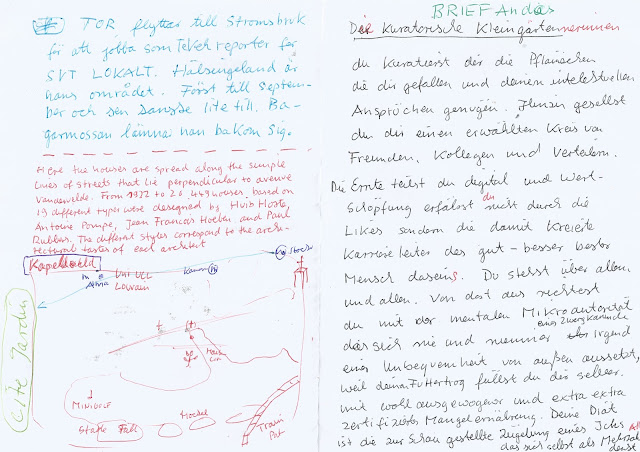 TOR flyttar till Strömsbruk
för att jobba som TeVeh reporter för
SVT LOKALT. Hälsingeland är
hans området. Först till septem-
ber och sen kanske lite till. Ba-
garmossan lämna han bakom sig.
Here the houses are spread along the simple
lines of streets that lie perpendicular to avenue
Vandervelde. From 1922 to 26 449 houses, based on
19 different types were designed by Huib Hoste,
Antoine Pompe, Jean Francois Hoeben and Paul
Rubbers. The different styles correspond to the archi-
tectural tastes of each architect
Kapelleveld
UNI UCL
Louvain
Alma
Cité Jardin
MINIGOLF
Stalle
Fall
Train
BRIEF An das
Die Kuratorische Kleingärtnerinnen
du kuratierst dir die Pflänzchen
die dir gefallen und deinen intelektuellen
Ansprüchen genügen. Hinein gesellst
du dir einen erwählten Kreis von
Freunden, Kollegen und Vertelern.
Die Ernte teilst du digital und Wert-
schöpfung erfährst du nicht durch die
Likes sondern die damit Kreierte
Karriereleiter des gut - besser bester
Mensch daseins. Du stehst über allem
und allen. Von dort aus richtest
du mit der mentalen Mikroautorität
das sich nie und nimmer irgend
einer Unbequemheit von außen aussetzt,
weil deinen Futtertrog füllst du dir selber.
mit wohl ausgewogener und extra extra
zertifizierter Mangelernährung. Deine Diät
ist die zur Schau gestellte Zügelung eines Ichs
das sich selbst als